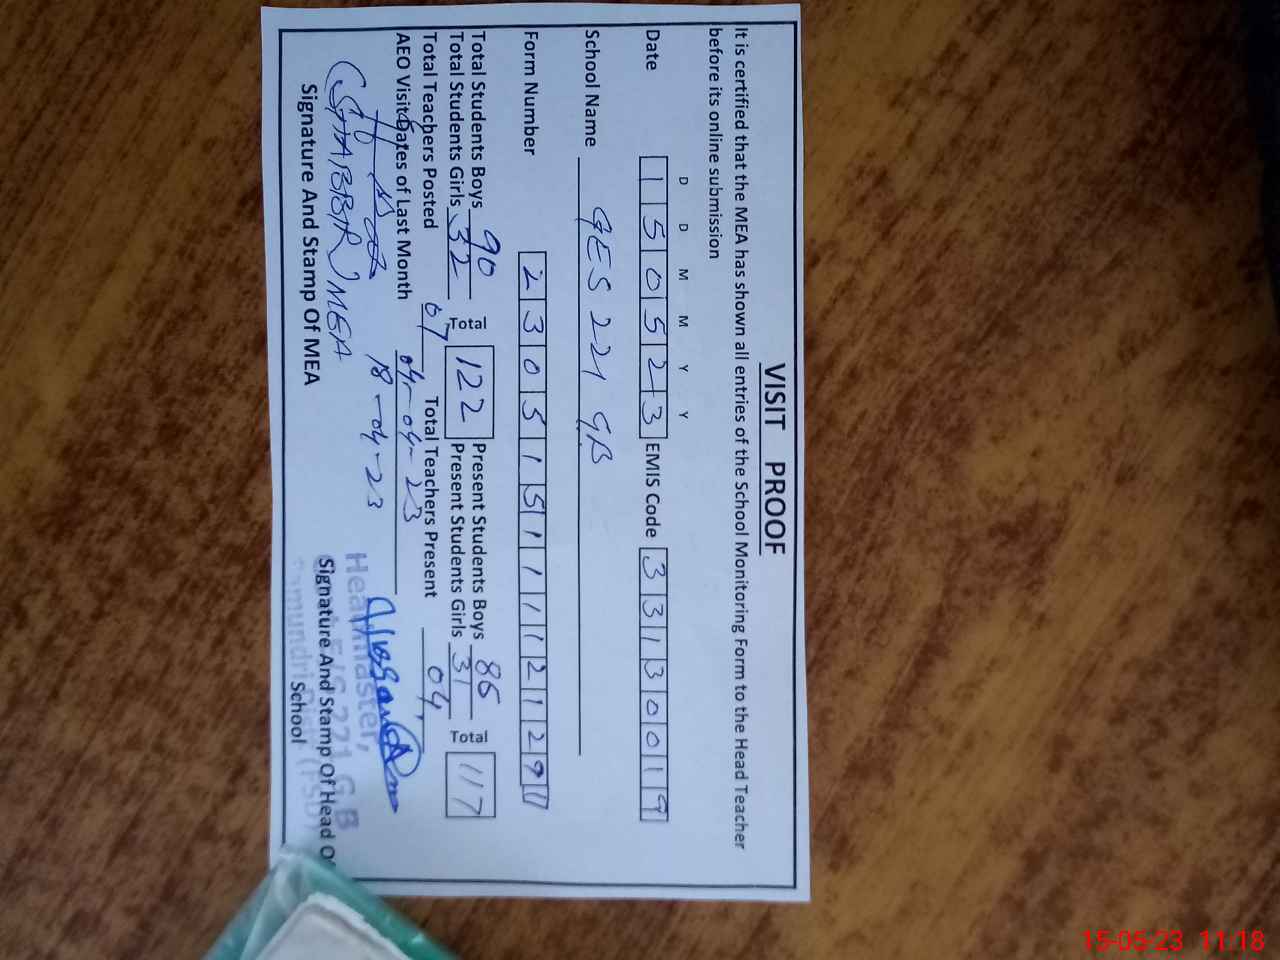 VISIT PROOF
It is certified that the MEA has shown all entries of the School Monitoring Form to the Head Teacher
before its online submission
D D M M Y Y
Date 1 5 0 5 2 3 EMIS Code 3 3 1 3 0 0 1 9
School Name GES 221 GB
Form Number 2 3 0 5 1 5 1 1 1 1 2 1 2 9
Total Students Boys 90 Total 122 Present Students Boys 86 Total 117
Total Students Girls 32 Present Students Girls 31
Total Teachers Posted 07 Total Teachers Present 04
AEO Visit Dates of Last Month 04-04-23
18-04-23
(SHABBIR) MEA
Headmaster,
221 G.B
Signature And Stamp Of MEA
Signature And Stamp Of Head Of
School
15-05-23 11:18